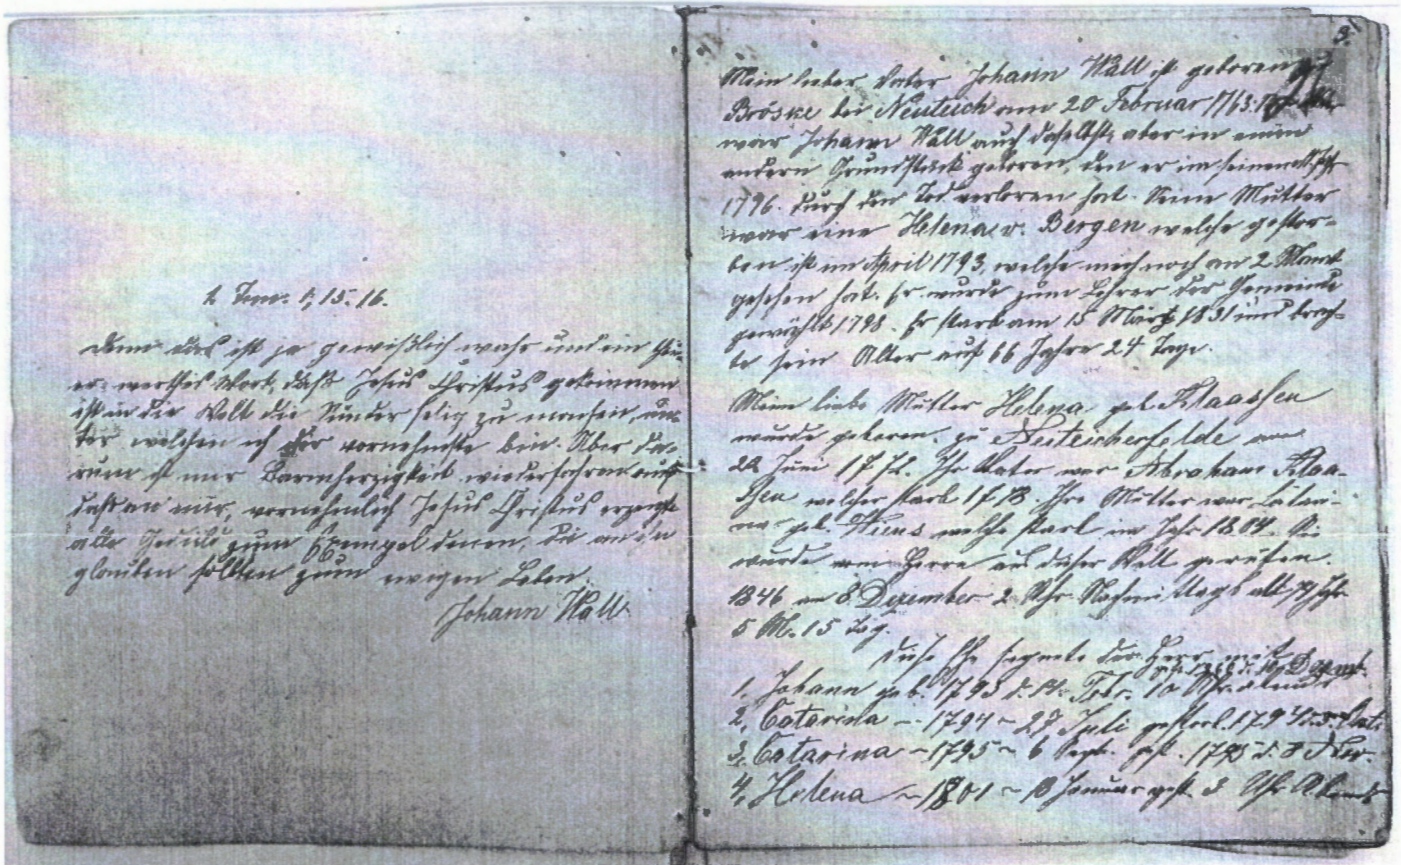 1 Tim. 1, 15. 16.
Denn das ist je gewißlich wahr und ein theu-
er werthes Wort, daß Jesus Christus gekommen
ist in die Welt die Sünder selig zu machen, un-
ter welchen ich der vornehmste bin. Aber da-
rum ist mir Barmherzigkeit wiederfahren auf
daß an mir, vornehmlich Jesus Christus erzeigte
alle Geduld zum Exempel denen, die an ihn
glauben sollten zum ewigen Leben.
Johann Wall
3.
Mein lieber Vater Johann Wall ist geboren
Bröske bei Neuteich am 20 Februar 1763.
war Johann Wall auch daselbst, aber in einem
andern Grundstück geboren, den er im seinem
1796. durch den Tod verloren hat. Seine Mutter
war eine Helena v. Bergen welche gestor-
ben ist im April 1793, welche mich noch an 2 Monat
gesehen hat. Er wurde zum Lehrer der Gemeinde
gewählt 1798. Er starb am 15 März 1831 und brach-
te sein Alter auf 66 Jahre 24 Tage.
Meine liebe Mutter Helena geb. Klaassen
wurde geboren zu Neuteicherfelde am
22 Juni 1772. Ihr Vater war Abraham Klaa-
ssen welcher starb 1818. Ihre Mutter war Catari-
na geb. Wiens welche starb im Jahr 1804. Sie
wurde vom Herrn aus dieser Welt gerufen.
1846 am 8 Dezember 2 Uhr Nachmittags alt 74 Jahr
5 M. 15 Tag.
Diese Ehe segnete der Herr mit
1. Johann geb. 1793 d. 14 Febr. 10 Uhr abends
2. Catarina — 1794 — 27 Juli gestorb. 1794
3. Catarina — 1795 — 6 Sept. gest. 1795 d. 8
4. Helena — 1801 — 18 Januar gest 3 Uhr Abends